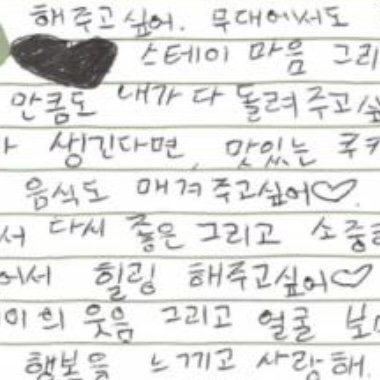 해주고싶어. 무대에서도
스테이 마음 그리
안큼도 내가 다 돌려주고싶
생긴다면, 맛있는 쿠키
음식도 매겨주고싶어♡.
서 다시 좋은 그리고 소중한
에서 힐링 해주고싶어♡
이의 웃음 그리고 얼굴 보
행복을 느끼고 사랑해.